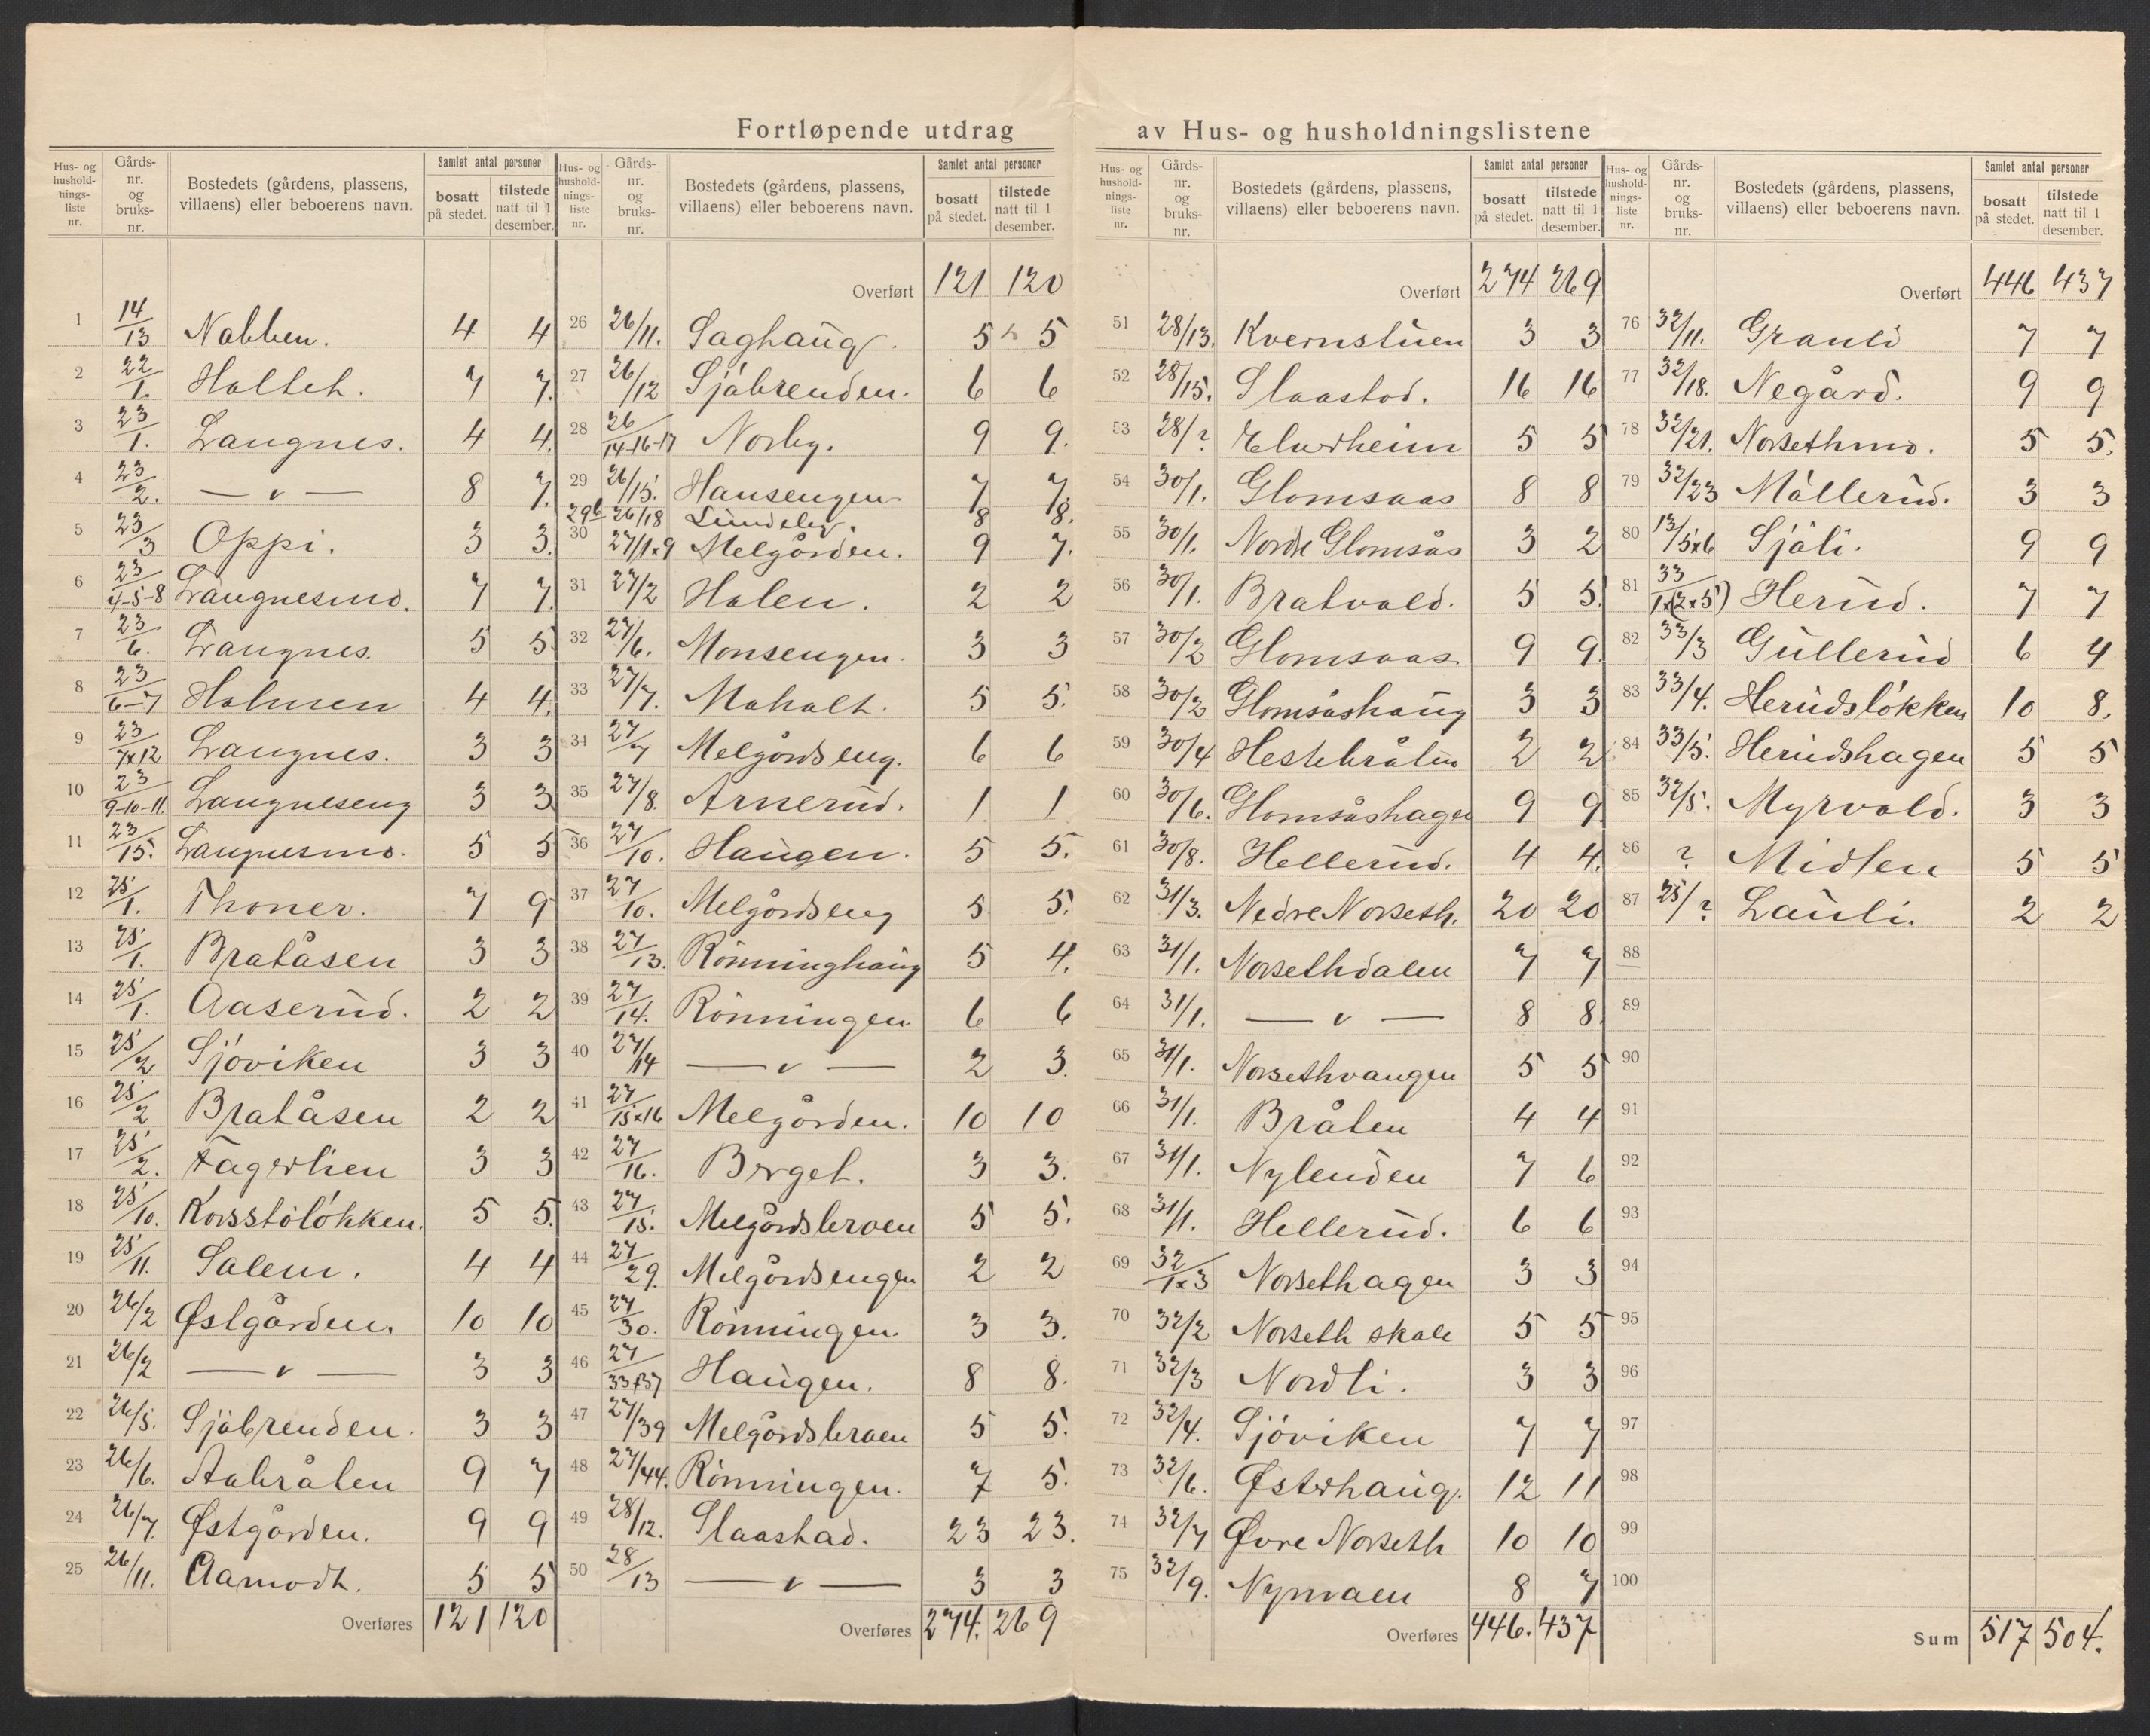 Fortløpende utdrag av Hus- og husholdningslistene
Hus- og husholdningsliste nr. | Gårds-nr. og bruks-nr. | Bostedets (gårdens, plassens, villaens) eller beboerens navn. | Samlet antal personer bosatt på stedet. | tilstede natt til 1 desember.
1 14/13 Nabben. 4 4
2 22/1. Holteh. 7 7.
3 23/1. Langnes. 4 4.
4 23/2. — " — 8 7.
5 23/3 Oppi. 3 3.
6 23/4-5-8 Langnesmo. 7 7.
7 23/6. Langnes. 5 5
8 23/6-7 Holmen 4 4.
9 23/7x12 Langnes. 3 3
10 23/9-10-11. Langneseng 3 3
11 23/15. Langnesmo. 5 5
12 25/1. Thoner. 7 9
13 25/1. Bratåsen 3 3
14 25/1. Aaserud. 2 2
15 25/2 Sjöviken 3 3
16 25/2 Bratåsen 2 2
17 25/2. Fagerlien 3 3
18 25/10. Korsstölökken. 5 5.
19 25/11. Salem. 4 4
20 26/2 Østgården. 10 10
21 26/2 — " — 3 3
22 26/5. Sjöbrenden. 3 3
23 26/6. Aabråten 9 7
24 26/7. Østgården. 9 9
25 26/11. Aamodt. 5 5
Overføres 121 120
Hus- og husholdningsliste nr. | Gårds-nr. og bruks-nr. | Bostedets (gårdens, plassens, villaens) eller beboerens navn. | Samlet antal personer bosatt på stedet. | tilstede natt til 1 desember.
Overført 121 120
26 26/11. Saghaug. 5 5
27 26/12 Sjöbrenden. 6 6
28 26/14-16-17 Norby. 9 9.
29 26/15. Hansengen. 7 7.
29b 26/18 Lundeby. 8 8.
30 27/1x9 Melgården. 9 7.
31 27/2 Holen. 2 2
32 27/6. Monsengen. 3 3
33 27/7. Moholt. 5 5.
34 27/7 Melgårdseng. 6 6
35 27/8. Arnerud. 1 1
36 27/10. Haugen. 5 5.
37 27/10. Melgårdseng 5 5.
38 27/13. Rönninghaug 5 4.
39 27/14. Rönningen 6 6
40 27/14 — " — 2 3.
41 27/15x16 Melgården. 10 10
42 27/16. Berget. 3 3.
43 27/15. Melgårdsbroen 5 5.
44 27/29. Melgårdsengen 2 2
45 27/30. Rönningen. 3 3.
46 27/33x37 Haugen. 8 8.
47 27/39 Melgårdsbroen 5 5.
48 27/44. Rönningen. 7 5.
49 28/12. Slaastad. 23 23.
50 28/13 — " — 3 3
Overføres 274. 269
Hus- og husholdningsliste nr. | Gårds-nr. og bruks-nr. | Bostedets (gårdens, plassens, villaens) eller beboerens navn. | Samlet antal personer bosatt på stedet. | tilstede natt til 1 desember.
Overført 274 269
51 28/13. Kvernstuen 3 3
52 28/15. Slaastad. 16 16
53 28/? Elverheim 5 5
54 30/1. Glomsaas 8 8
55 30/1. Nordre Glomsås 3 2
56 30/1. Bratvold. 5 5.
57 30/2 Glomsaas. 9 9.
58 30/2 Glomsåshaug 3 3
59 30/4 Hestebråten 2 2
60 30/6. Glomsåshagen 9 9
61 30/8. Hellerud. 4 4.
62 31/3. Nedre Norseth. 20 20
63 31/1. Norsethdalen 7 7
64 31/1. — " — 8 8.
65 31/1. Norsethvangen 5 5
66 31/1. Bråten 4 4
67 31/1. Nylenden 7 6
68 31/1. Hellerud. 6 6
69 32/1x3 Norsethagen 3 3
70 32/2 Norseth skole 5 5
71 32/3 Nordli. 3 3
72 32/4. Sjöviken 7 7
73 32/6. Østerhaug. 12 11
74 32/7 Øvre Norseth 10 10
75 32/9. Nymoen 8 7
Overføres 446. 437
Hus- og husholdningsliste nr. | Gårds-nr. og bruks-nr. | Bostedets (gårdens, plassens, villaens) eller beboerens navn. | Samlet antal personer bosatt på stedet. | tilstede natt til 1 desember.
Overført 446 437
76 32/11. Granli 7 7
77 32/18. Negård. 9 9
78 32/21. Norsethmo. 5 5.
79 32/23 Möllerud. 3 3
80 13/5x6 Sjöli. 9 9
81 33/1x(2x5) Herud. 7 7
82 33/3 Gullerud 6 4
83 33/4. Herudslökken 10 8.
84 33/5. Herudshagen 5 5
85 32/5. Myrvold. 3 3
86 ? Midlen 5 5
87 25/? Lauli. 2 2
88
89
90
91
92
93
94
95
96
97
98
99
100
Sum 517 504.